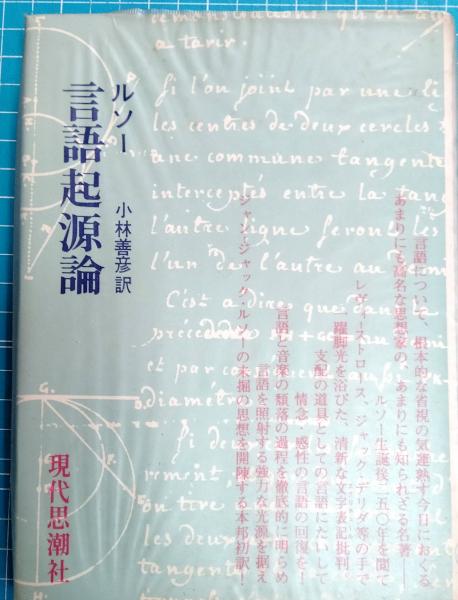 ルソー
言語起源論
小林善彦訳
現代思潮社
言語について、根本的な省視の気運熱す今日におくる
あまりにも高名な思想家の、あまりにも知られざる名著――
ルソー生誕後二五〇年を閲て
レヴィ＝ストロース、ジャック・デリダ等の手で
一躍脚光を浴びた、清新な文字表記批判
支配の道具としての言語にたいして
情念、感性の言語の回復を！
言語と音楽の頽落の過程を徹底的に明らめ
言語を照射する強力な光源を据え
ジャン＝ジャック・ルソーの未掘の思想を開陳する本邦初訳！
a tarir.
Si l'on joint par une li
les centres de deux cercles t
une commune tangente
interceptés entre la tang
l'autre ligne seront les
l'un de l'autre au
C'est a dire que
précédde
et par co
diamétre
Si deux